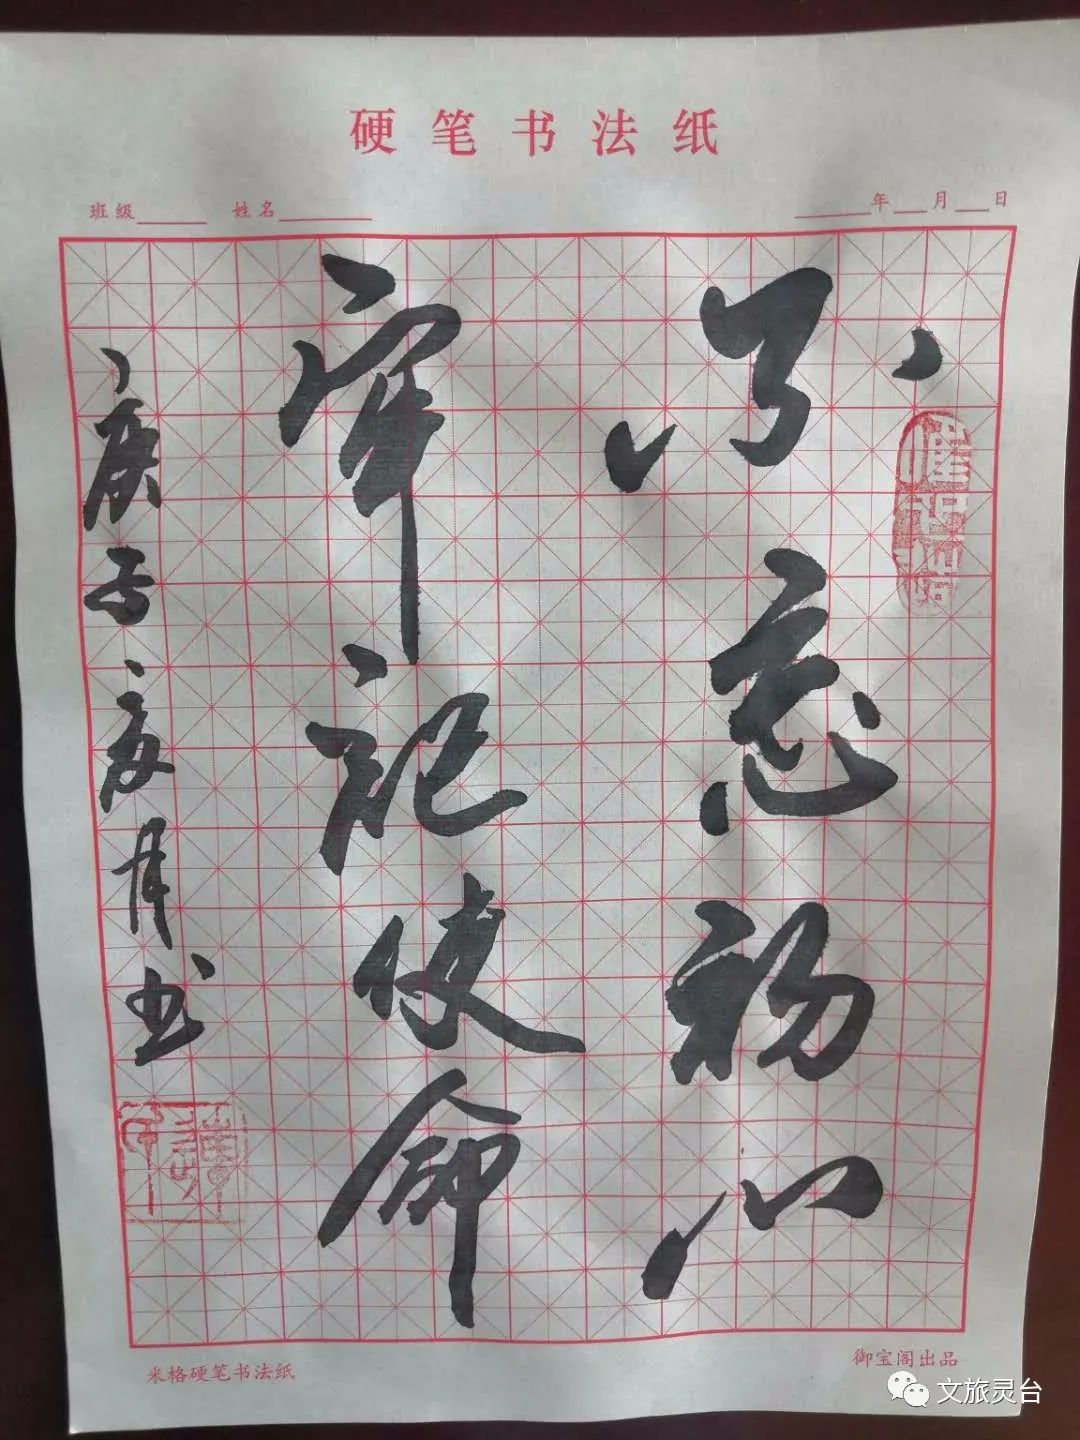 硬笔书法纸
班级 姓名 年 月 日
不忘初心
牢记使命
庚子夏月书
米格硬笔书法纸
御宝阁出品
文旅灵台